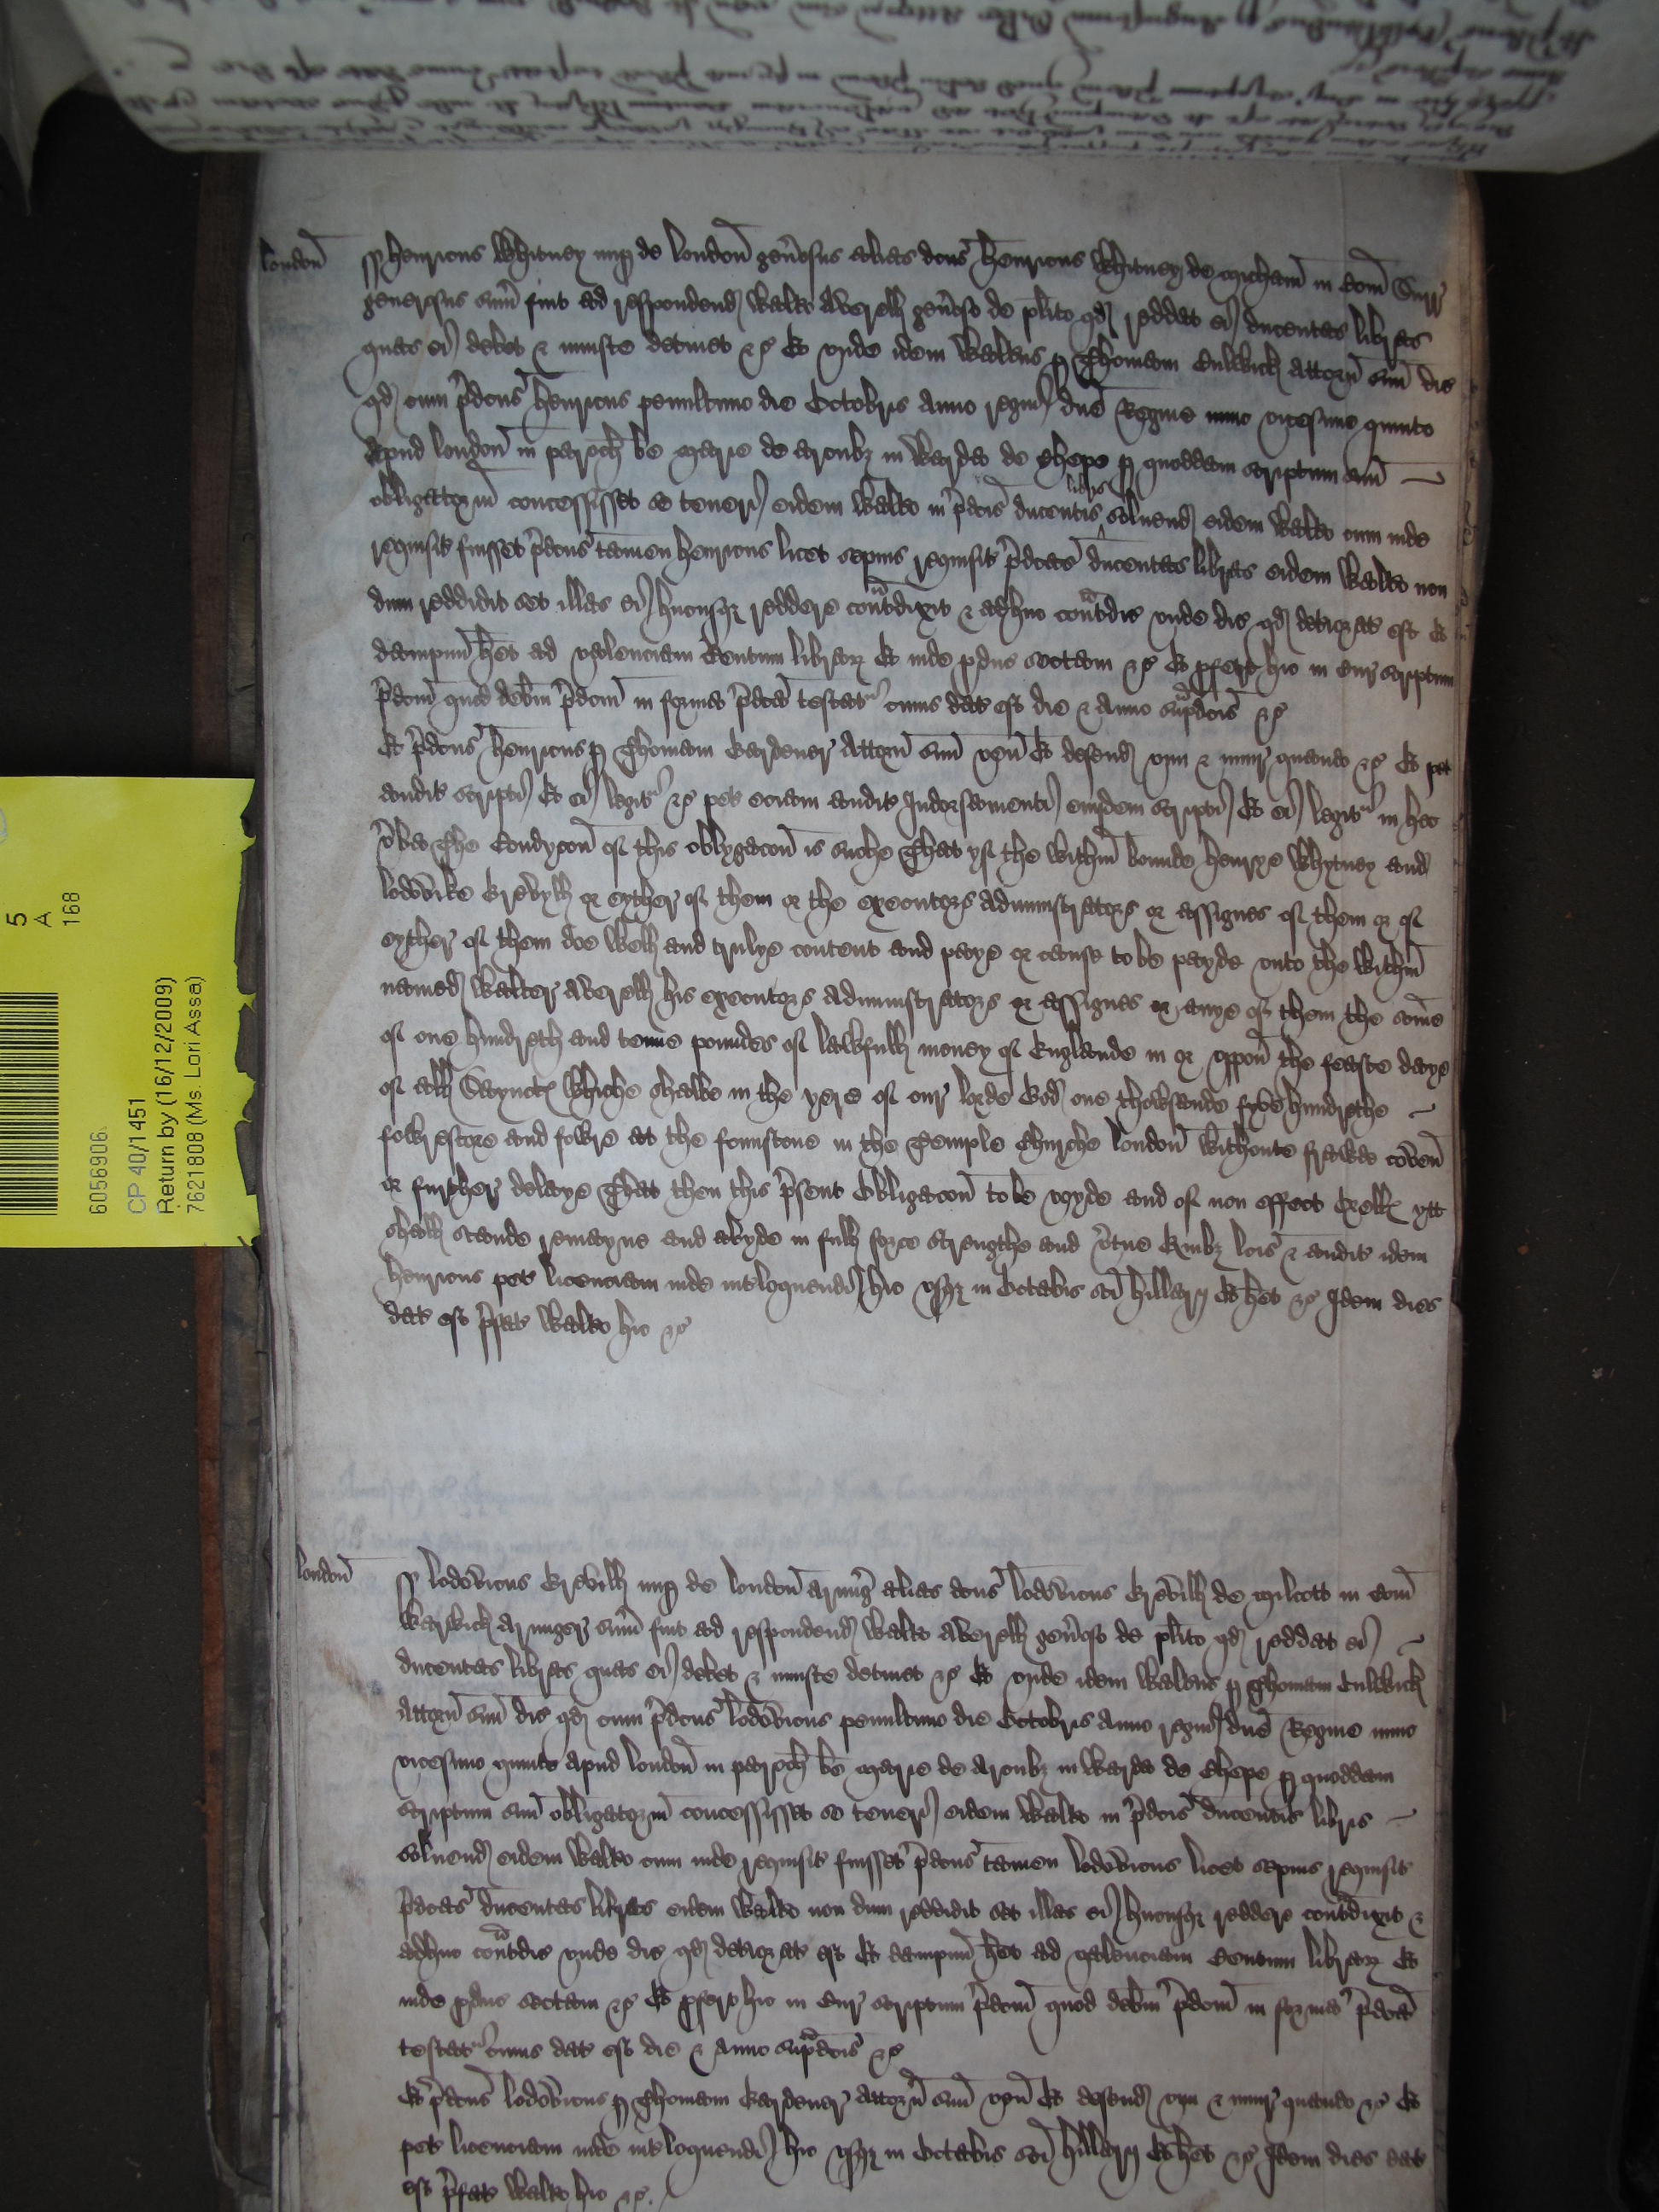 London̄ ss Henricus Whitney nup de London̄ gen̄osus alias dc̄us Henricus Whitney de Micham̄ in Com̄ Surr
generosus sum̄ fuit ad respondend Waltō Averell gen̄oso de pl̄ito qd reddat ei ducentas libras
quas ei debet & iniuste detinet &c Et unde idem Walterus p Thomam Culwick Attorn̄ suū dic
qd cum p̄dc̄us Henricus penultimo die Octobris Anno regni dn̄e Regine nunc vicesimo quinto
apud London̄ in paroch̄ be Marie de arcubȝ in Warda de Chepe p quoddam scriptum suū
obligatoriū concessisset se teneri eidem Waltō in p̄dc̄is ducentis libris solvend eidem Waltō cum inde
requisit fuisset p̄dc̄us tamen Henricus licet sepius requisit p̄dc̄as ducentas libras eidem Waltō non
dum reddidit set illas ei hucusqȝ reddere cont̄dixit & adhuc cont̄dic unde dic qd deteriorat est Et
dampnū het ad valenciam Centum librarȝ Et inde pduc sectam &c Et pfert hic in Cur scriptum
p̄dc̄m quod debm̄ p̄dc̄m in forma p̄dc̄a testat' cuius dat est die & Anno sup̄dc̄is &c
Et p̄dc̄us Henricus p Thomam Gardener Attorn̄ suū ven̄ Et defend vim & iniur quando &c Et pet
audit scripti Et ei legit' &c pet eciam audit Indorsamenti eiusdem scripti Et ei legit' in hec
v̄ba The Condycon̄ of this oblygacon̄ is suche That yf the within̄ bounde Henrye Whytney and
Lodovike Grevyll or eyther of them or the executors Administrators or assignes of them or of
eyther of them doe well and trulye content and paye or cause to be payde unto the within̄
named Walter Averell his executors Administrators or assignes or anye of them the som̄e
of one hundreth and tenne poundes of lawfull money of Englande in or uppon̄ the feaste daye
of all Saynctȝ Whiche shalbe in the yere of our lorde God one thowsande fyve hundrethe
fowrescore and fowre at the fountstone in the Temple Churche London̄ Withoute frawde coven̄
or further delaye That then this p̄sent Obligacon̄ to be voyde and of non effect Or ellȝ ytt
shall stande remayne and abyde in full force strengthe and v̄tue Quibȝ lc̄is & audit idem
Henricus pet licenciam inde int̄loquendi hic usqȝ in Octabis sc̄i Hillarij Et het &c Idem dies
dat est p̄fat Waltō hic &c
London̄ ss Lodovicus Grevill nup de London̄ armiḡ alias dc̄us Lodovicus Grevill de Milcott in Com̄
Warwick Armiger sum̄ fuit ad respondend Waltō Averell gen̄oso de pl̄ito qd reddat ei
ducentas libras quas ei debet & iniuste detinet &c Et unde idem Walterus p Thomam Culwick
Attorn̄ suū dic qd cum p̄dc̄us Lodovicus penultimo die Octobris Anno regni dn̄e Regine nunc
vicesimo quinto apud London̄ in paroch̄ be Marie de Arcubȝ in Warda de Chepe p quoddam
scriptum suū obligatoriū concessisset se teneri eidem Waltō in p̄dc̄is ducentis libris
solvend eidem Waltō cum inde requisit fuisset p̄dc̄us tamen Lodovicus licet sepius requisit
p̄dc̄as ducentas libras eidem Waltō non dum reddidit set illas ei hucusqȝ reddere cont̄dixit &
adhuc cont̄dic unde dic qd deteriorat est Et dampnū het ad valenciam Centum librarȝ Et
inde pduc sectam &c Et pfert hic in Cur scriptum p̄dc̄m quod debm̄ p̄dc̄m in forma p̄dc̄a
testat' cuius dat est die & Anno sup̄dc̄is &c
Et p̄dc̄us Lodovicus p Thomam Gardener Attorn̄ suū ven̄ Et defend vim & iniur quando &c Et
pet licenciam inde int̄loquendi hic usqȝ in Octabis sc̄i Hillarij Et het &c Idem dies dat
est p̄fat Waltō hic &c.
5
A
168
6056906
CP 40/1451
Return by (16/12/2009)
7621808 (Ms. Lori Assa)